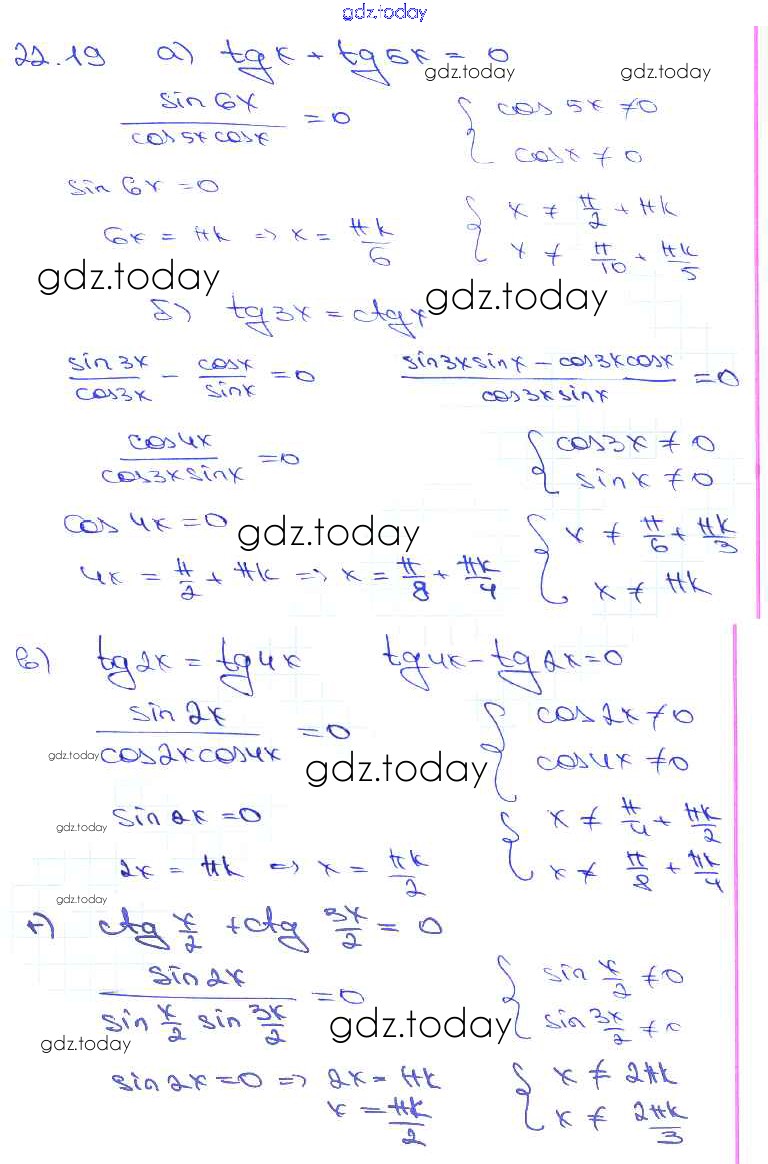 gdz.today
22.19 а) tg x + tg 5x = 0
gdz.today gdz.today
sin 6x / cos 5x cos x = 0 { cos 5x ≠ 0
cos x ≠ 0
sin 6x = 0
6x = πk => x = πk/6 { x ≠ π/2 + πk
x ≠ π/10 + πk/5
gdz.today gdz.today
б) tg 3x = ctg x
sin 3x / cos 3x − cos x / sin x = 0 sin 3x sin x − cos 3x cos x / cos 3x sin x = 0
cos 4x / cos 3x sin x = 0 { cos 3x ≠ 0
sin x ≠ 0
cos 4x = 0 gdz.today { x ≠ π/6 + πk/3
4x = π/2 + πk => x = π/8 + πk/4 x ≠ πk
в) tg 2x = tg 4x tg 4x − tg 2x = 0
sin 2x / cos 2x cos 4x = 0 { cos 2x ≠ 0
gdz.today gdz.today cos 4x ≠ 0
gdz.today sin 2x = 0 { x ≠ π/4 + πk/2
2x = πk => x = πk/2 x ≠ π/8 + πk/4
gdz.today
г) ctg x/2 + ctg 3x/2 = 0
sin 2x / sin x/2 sin 3x/2 = 0 { sin x/2 ≠ 0
gdz.today gdz.today sin 3x/2 ≠ 0
sin 2x = 0 => 2x = πk { x ≠ 2πk
x = πk/2 x ≠ 2πk/3